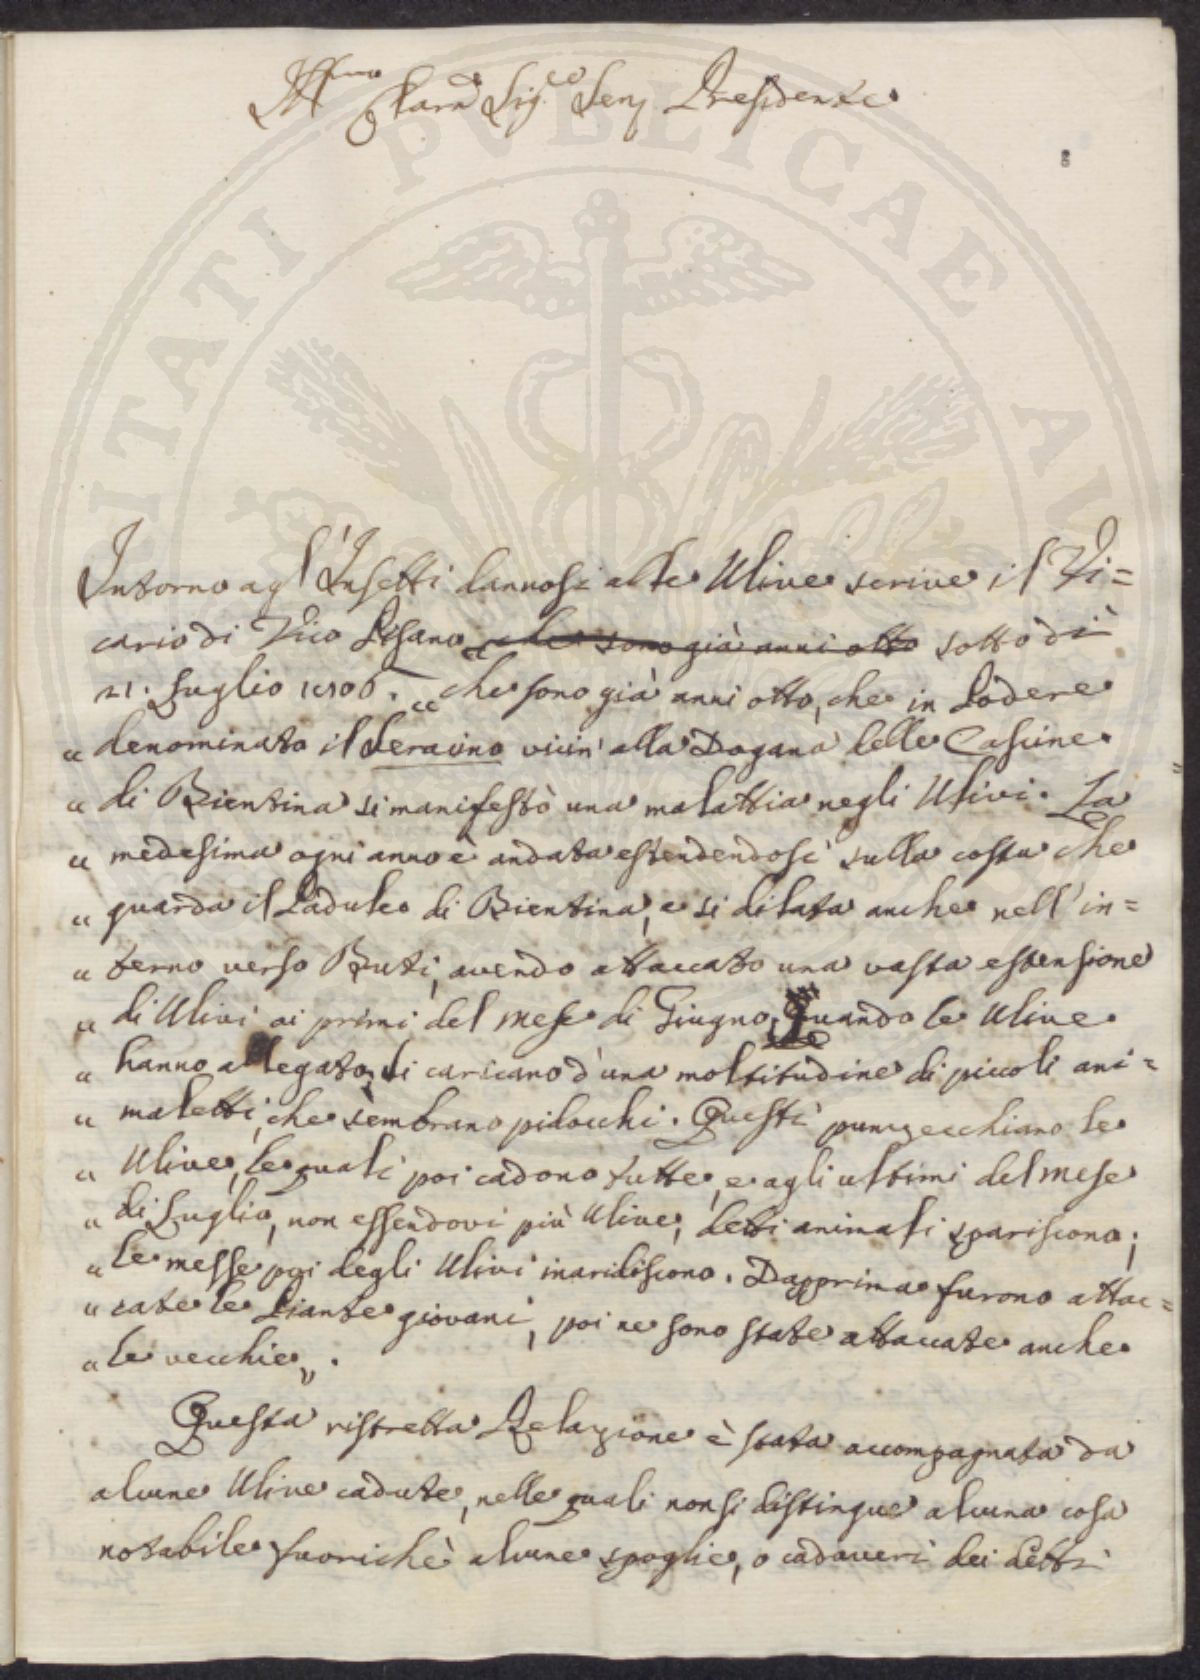 Ill.mo Clar.mo Sig.re Sen. Presidente
PVBLICAE
Intorno agl'Insetti dannosi alle Ulive scrive il Vi=
cario di Vico Pisano che sono già anni otto sotto dì
21. Luglio 1806. „ che sono già anni otto, che in Podere
„ denominato il Seracino vicin' alla Dogana delle Cascine
„ di Bientina si manifestò una malattia negli Ulivi. La
„ medesima ogni anno è andata estendendosi sulla costa che
„ guarda il Padule di Bientina, e si dilata anche nell'in=
„ terno verso Buti, avendo attaccato una vasta estensione
„ di Ulivi ai primi del mese di Giugno, Quando le Ulive
„ hanno allegato, si caricano d'una moltitudine di piccoli ani=
„ maletti, che sembrano pidocchi. Questi punzecchiano le
„ Ulive, le quali poi cadono tutte, e agli ultimi del mese
„ di Luglio, non essendovi più Ulive, detti animali spariscono;
„ le messe poi degli Ulivi inaridiscono. Dapprima furono attac=
„ cate le Piante giovani, poi ne sono state attaccate anche
„ le vecchie „.
Questa ristretta Relazione è stata accompagnata da
alcune Ulive cadute, nelle quali non si distingue alcuna cosa
notabile fuorichè alcune spoglie, o cadaveri dei detti